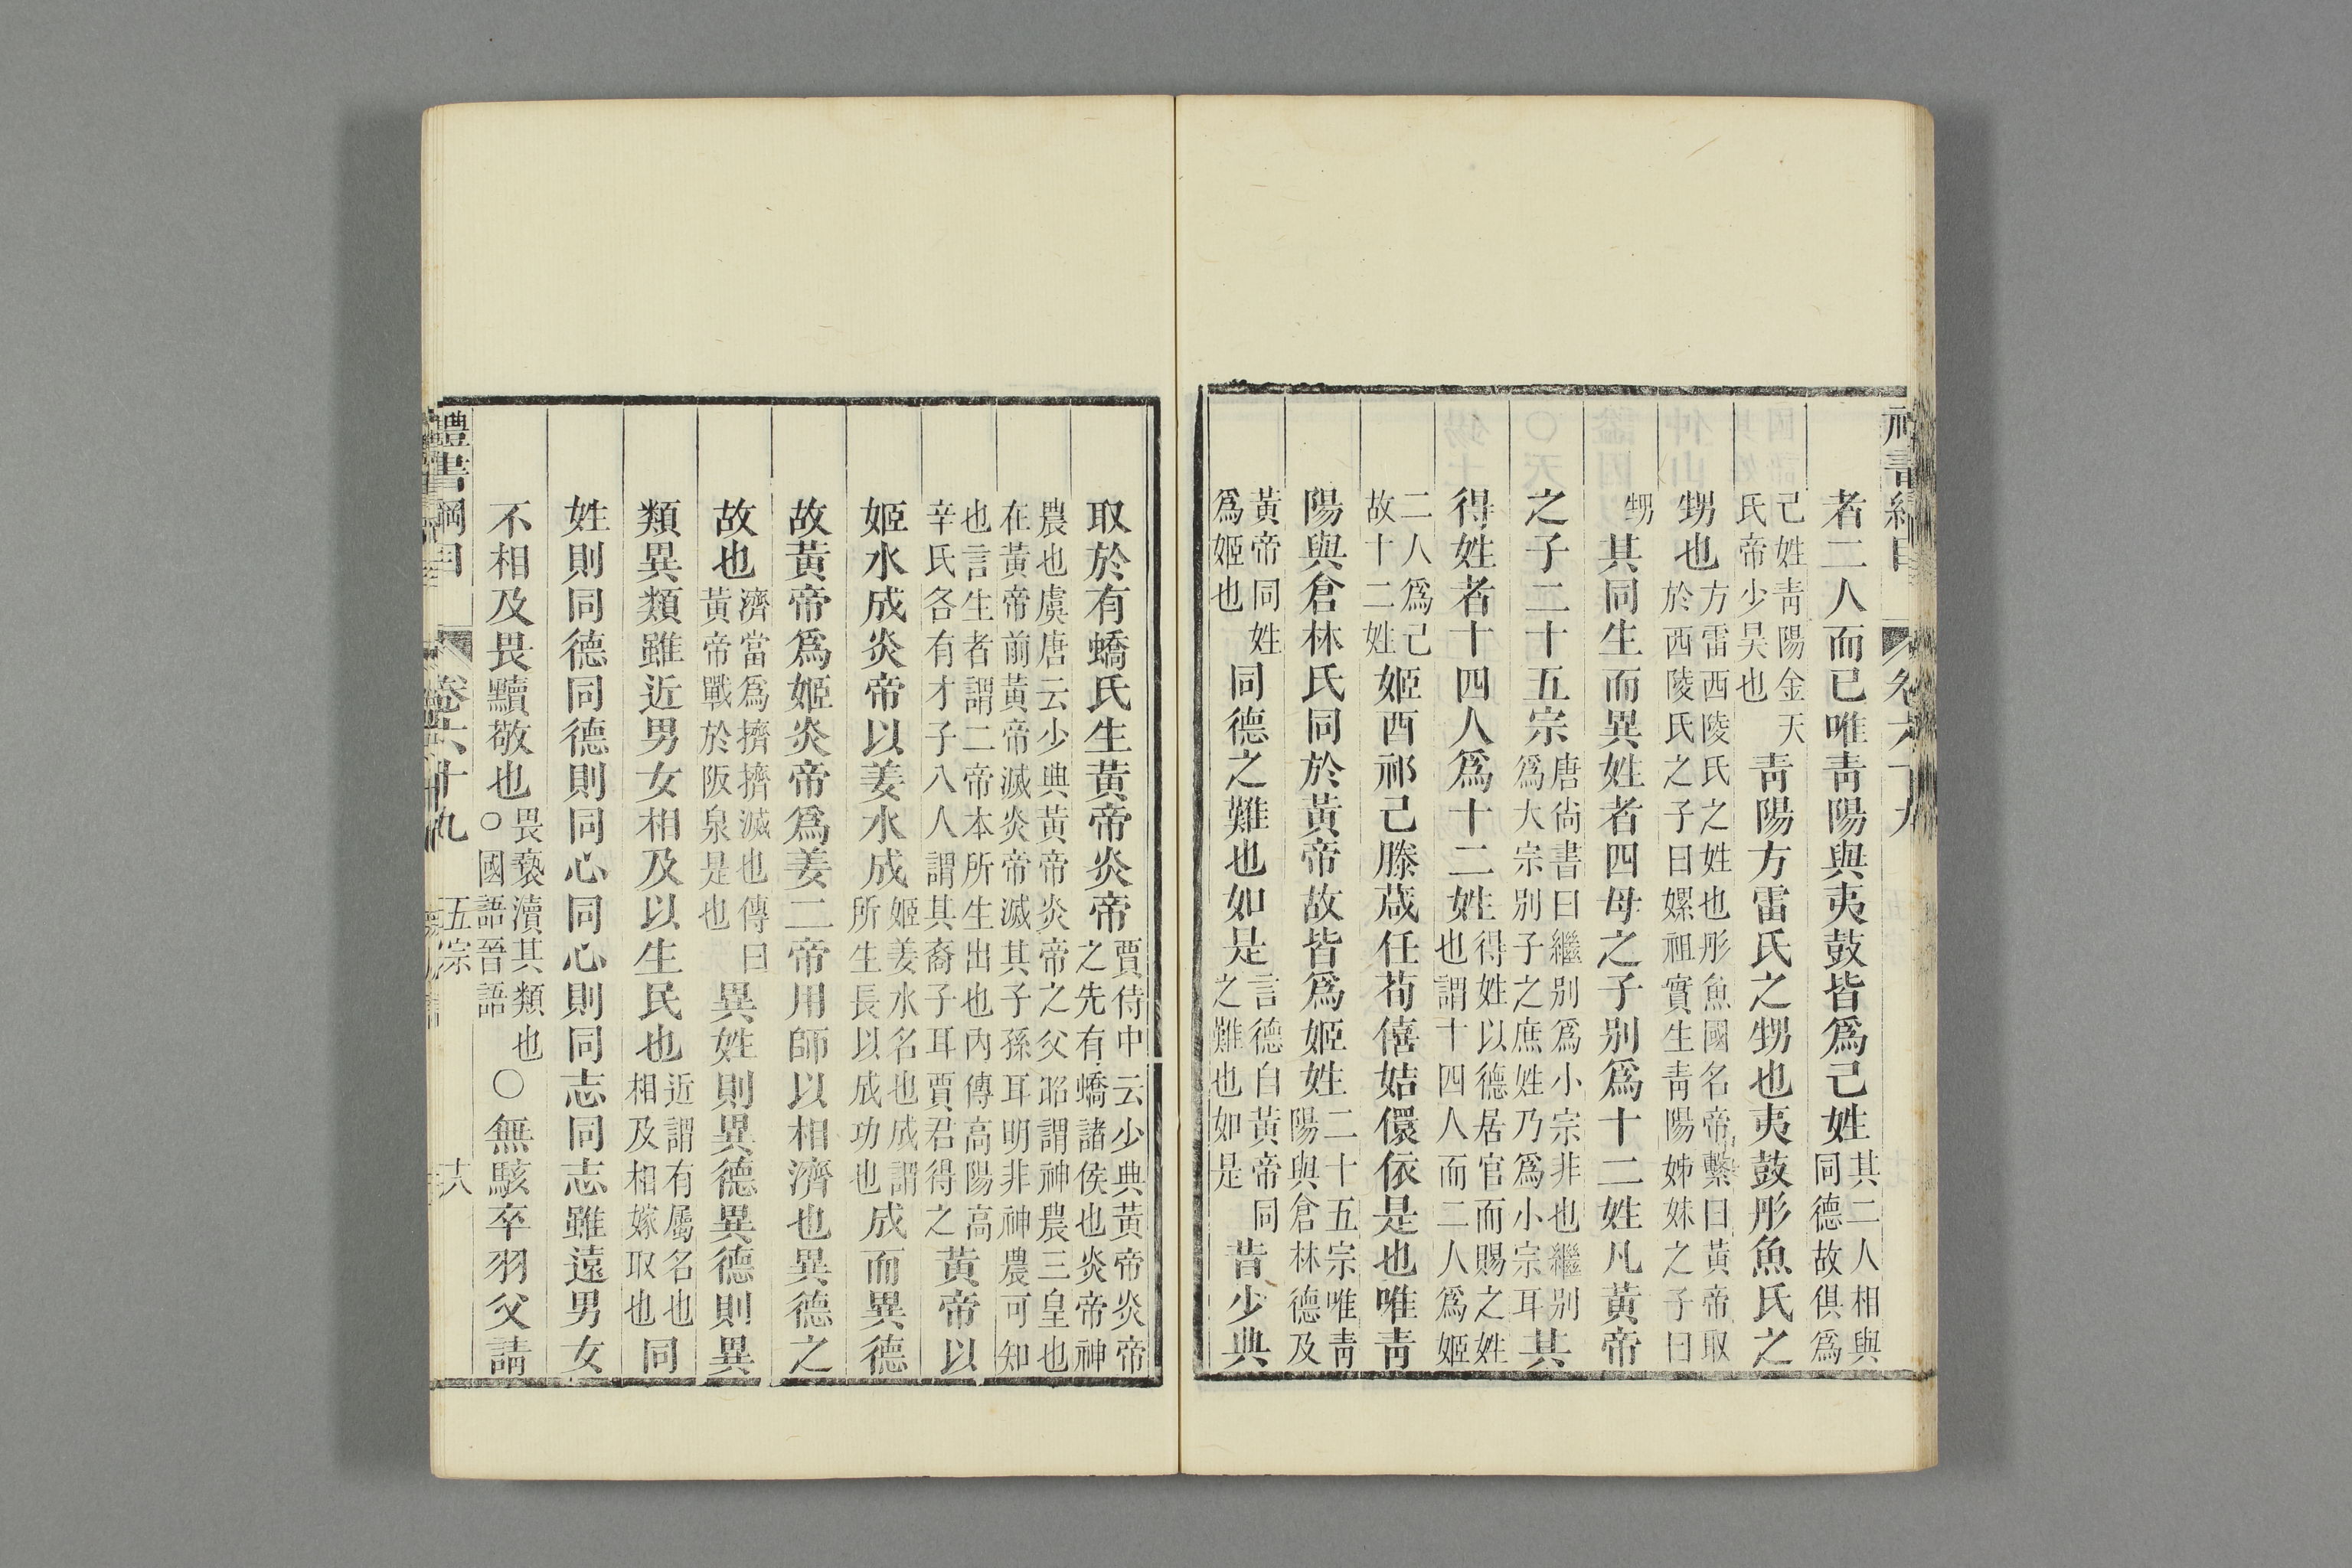 者二人而已唯靑陽與夷鼓皆爲己姓其二人相與同德故俱爲
己姓靑陽金天氏帝少昊也靑陽方雷氏之甥也夷鼓彤魚氏之
甥也方雷西陵氏之姓也彤魚國名帝繫曰黃帝取於西陵氏之子曰嫘祖實生靑陽姊妹之子曰
甥其同生而異姓者四母之子别爲十二姓凡黃帝
之子二十五宗唐尙書曰繼别爲小宗非也繼别爲大宗别子之庶姓乃爲小宗耳其
得姓者十四人爲十二姓得姓以德居官而賜之姓也謂十四人而二人爲姬
二人爲己故十二姓姬酉祁己滕葴任苟僖姞儇依是也唯靑
陽與倉林氏同於黃帝故皆爲姬姓二十五宗唯靑陽與倉林德及
黃帝同姓爲姬也同德之難也如是言德自黃帝同之難也如是昔少典
取於有蟜氏生黃帝炎帝賈侍中云少典黃帝炎帝之先有蟜諸侯也炎帝神
農也虞唐云少典黃帝炎帝之父昭謂神農三皇也在黃帝前黃帝滅炎帝滅其子孫耳明非神農可知
也言生者謂二帝本所生出也內傳高陽高辛氏各有才子八人謂其裔子耳賈君得之黃帝以
姬水成炎帝以姜水成姬姜水名也成謂所生長以成功也成而異德
故黃帝爲姬炎帝爲姜二帝用師以相濟也異德之
故也濟當爲擠擠滅也傳曰黃帝戰於阪泉是也異姓則異德異德則異
類異類雖近男女相及以生民也近謂有屬名也相及相嫁取也同
姓則同德同德則同心同心則同志同志雖遠男女
不相及畏黷敬也畏褻瀆其類也○國語晉語○無駭卒羽父請
禮書綱目 卷六十九 五宗 十八